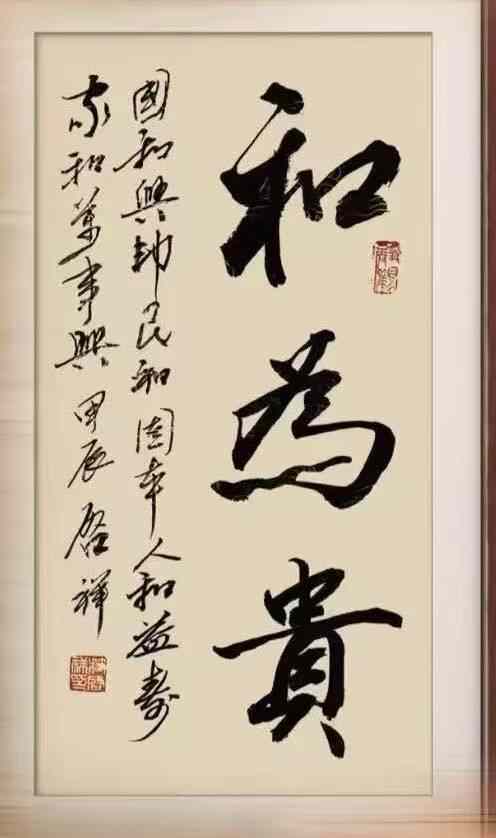 和為貴
國和興邦民和固本人和益壽
家和萬事興甲辰啓祥